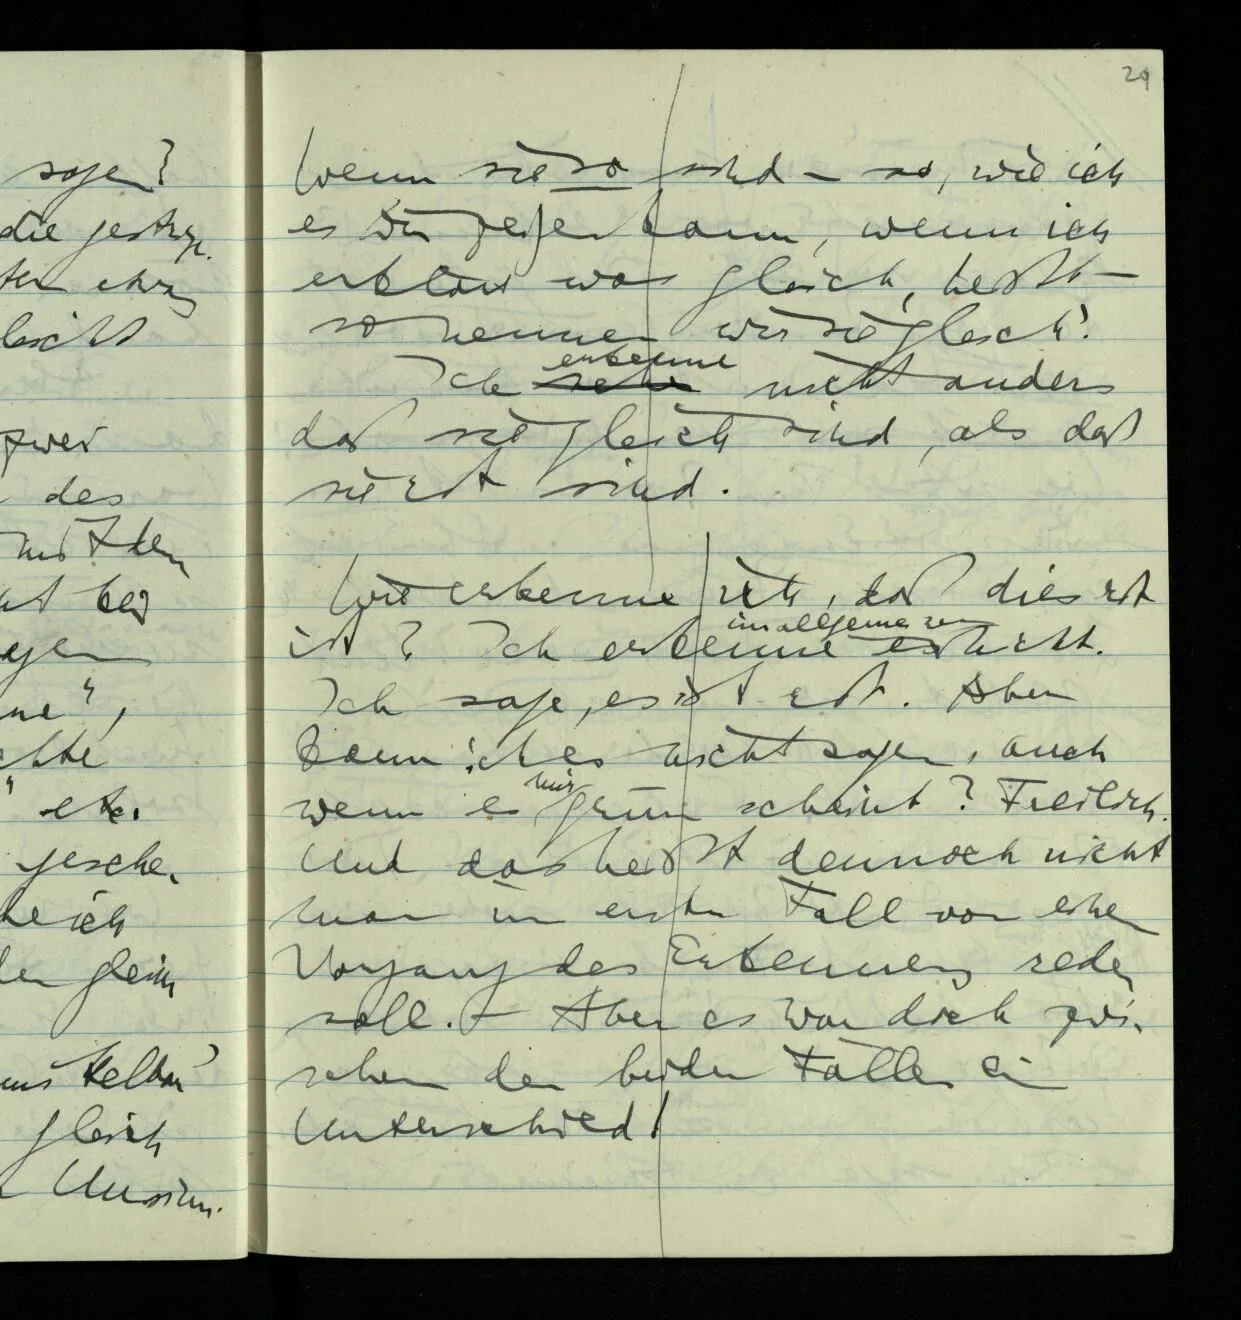 sagen?
die gestrige
leicht
zwei
des
mit dem
bei
ne",
" etc.
gesche-
gleich
Unsinn.
29
Wenn sie so sind – so, wie ich
es Dir zeigen kann, wenn ich
erklär was gleich' heißt –
so nennen wir sie gleich'.
Ich erkenne nicht anders
daß sie gleich sind, als daß
sie rot sind.
Wie erkenne ich, daß dies rot
ist? Ich erkenne es im allgemeinen nicht.
Ich sage, es ist rot. Aber
kann ich es nicht sagen, auch
wenn es mir grün scheint? Freilich.
Und das heißt dennoch nicht
man im ersten Fall von einem
Vorgang des Erkennens reden
soll. – Aber es war doch zwi-
schen den beiden Fällen ein
Unterschied!